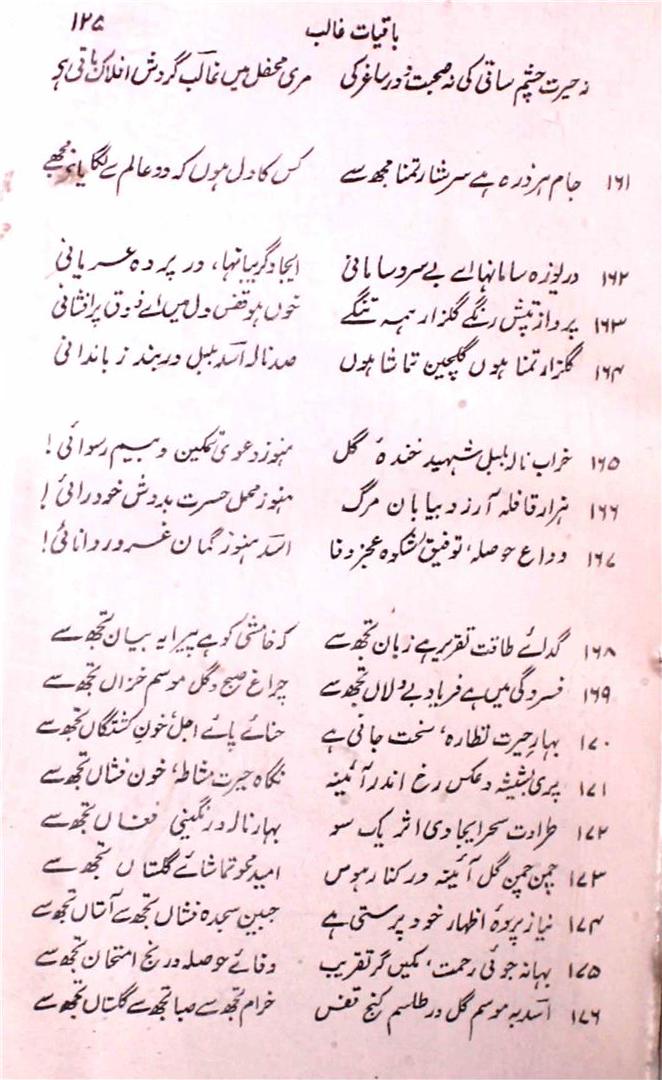 باقیات غالب ۱۲۵
نہ حیرت چشم ساقی کی نہ صحبت دور ساغر کی مری محفل میں غالب گردش افلاک باقی ہے
۱۶۱ جام ہر ذرہ ہے سرشار تمنا مجھ سے کس کا دل ہوں کہ دو عالم سے لگایا ہے مجھے
۱۶۲ دریوزہ سامانہا اے بے سرو سامانی ایجاد گریبانہا، در پردہ عریانی
۱۶۳ پرواز تپش رنگے گلزار ہمہ تنگے خوں ہو قفس دل میں اے ذوق پرافشانی
۱۶۴ گلزار تمنا ہوں گلچین تماشا ہوں صد نالہ اسد بلبل در بند زباندانی
۱۶۵ خراب نالہ بلبل شہید خندہ گل ہنوز دعوی تمکین و بیم رسوائی!
۱۶۶ ہزار قافلہ آرزو بیابان مرگ ہنوز محمل حسرت بدوش خودرائی!
۱۶۷ وداع حوصلہ، توفیق شکوہ عجز وفا اسد ہنوز گمان غرور دانائی!
۱۶۸ گدائے طاقت تقریر ہے زباں تجھ سے کہ خامشی کو ہے پیرایہ بیاں تجھ سے
۱۶۹ فسردگی میں ہے فریاد بے دلاں تجھ سے چراغ صبح و گل موسم خزاں تجھ سے
۱۷۰ بہار حیرت نظارہ، سخت جانی ہے حنائے پائے اجل خون کشتگاں تجھ سے
۱۷۱ پری بشیشہ و عکس رخ اندر آئینہ نگاہ حیرت مشاطہ، خون فشاں تجھ سے
۱۷۲ طراوت سحر ایجادی اثر یک سو بہار نالہ و رنگینی فغاں تجھ سے
۱۷۳ چمن چمن گل آئینہ در کنار ہوس امید محو تماشائے گلستاں تجھ سے
۱۷۴ نیاز پردہ اظہار خود پرستی ہے جبین سجدہ فشاں تجھ سے آستاں تجھ سے
۱۷۵ بہانہ جوئی رحمت، کمیں گر تقریب وفائے حوصلہ و رنج امتحاں تجھ سے
۱۷۶ اسد بہ موسم گل در طلسم کنج قفس خرام تجھ سے صبا تجھ سے گلستاں تجھ سے